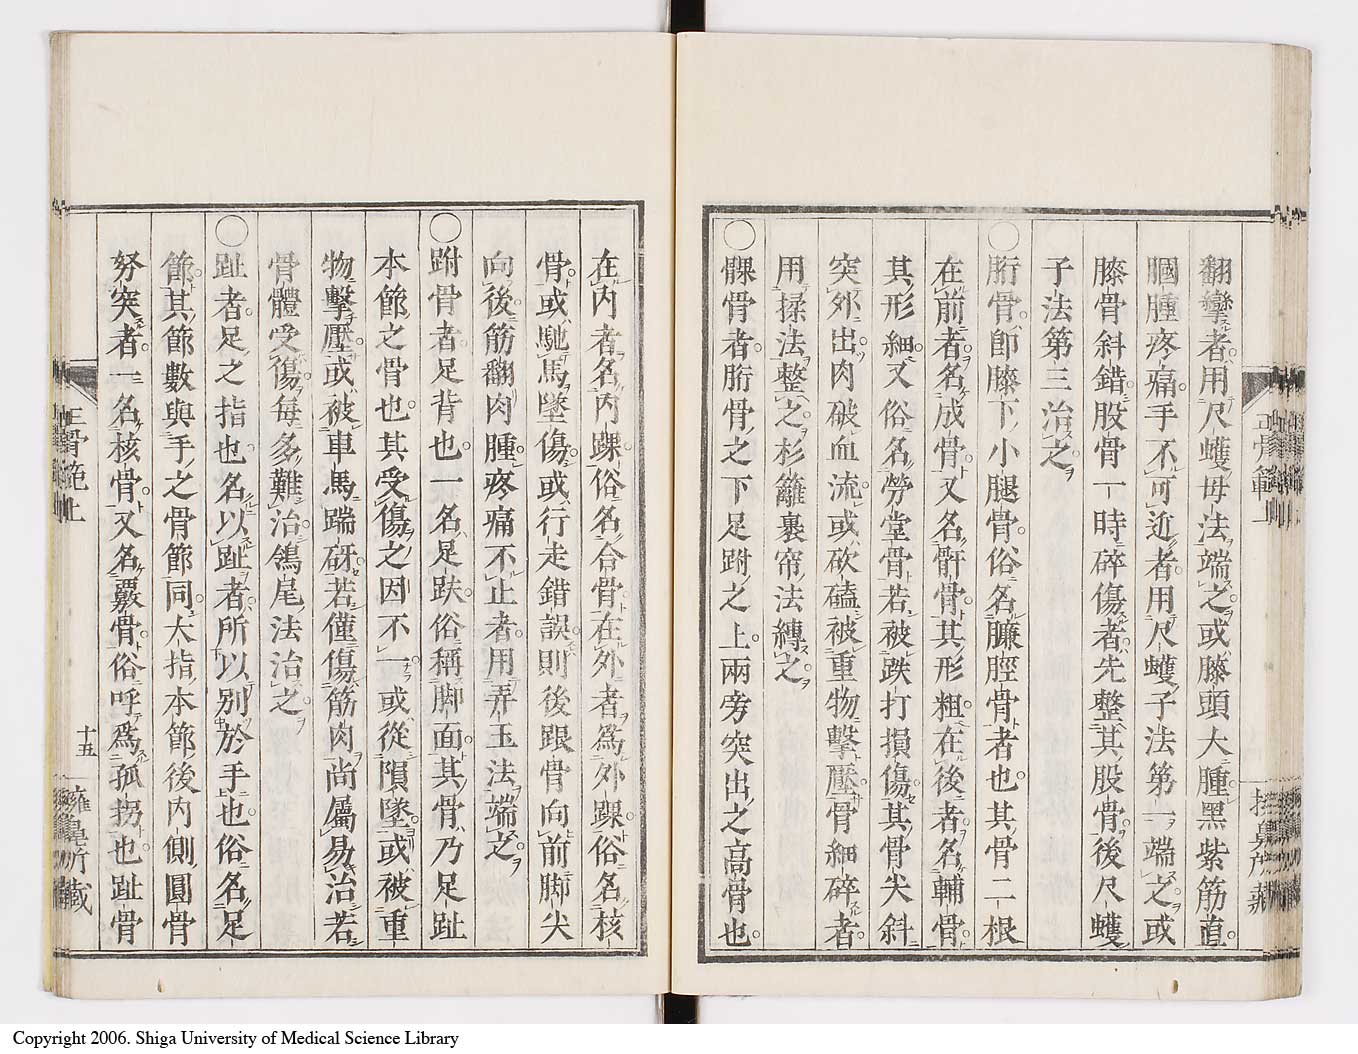 翻攣者用尺蠖母法端之或膝頭大腫黑紫筋直
膕腫疼痛手不可近者用尺蠖子法第一端之或
膝骨斜錯股骨一時碎傷者先整其股骨後尺蠖
子法第三治之
〇胻骨卽膝下小腿骨俗名臁脛骨者也其骨二根
在前者名成骨又名骭骨其形粗在後者名輔骨
其形細又俗名勞堂骨若被跌打損傷其骨尖斜
突外出肉破血流或砍磕被重物擊壓骨細碎者
用揉法整之杉籬裹帘法縳之
〇髁骨者胻骨之下足跗之上兩旁突出之高骨也
在內者名內踝俗名合骨在外者爲外踝俗名核
骨或馳馬墜傷或行走錯誤則後跟骨向前脚尖
向後筋翻肉腫疼痛不止者用弄玉法端之
〇跗骨者足背也一名足趺俗稱脚面其骨乃足趾
本節之骨也其受傷之因不一或從隕墜或被重
物擊壓或被車馬踹砑若僅傷筋肉尚屬易治若
骨體受傷每多難治鴿尾法治之
〇趾者足之指也名以趾者所以別於手也俗名足
節其節數與手之骨節同大指本節後內側圓骨
努突者一名核骨又名覈骨俗呼爲孤拐也趾骨
正骨範上
十五
擁鼻所藏